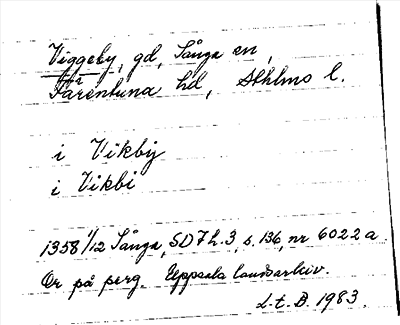 Viggeby, gd, Sånga en,
Färentuna hd, Sthlms l.
i Vikby
i Vikbi
1358 1/12 Sånga, SD 7 h. 3, s. 136, nr 6022 a
Or på perg. Uppsala landsarkiv.
L.t.B. 1983.